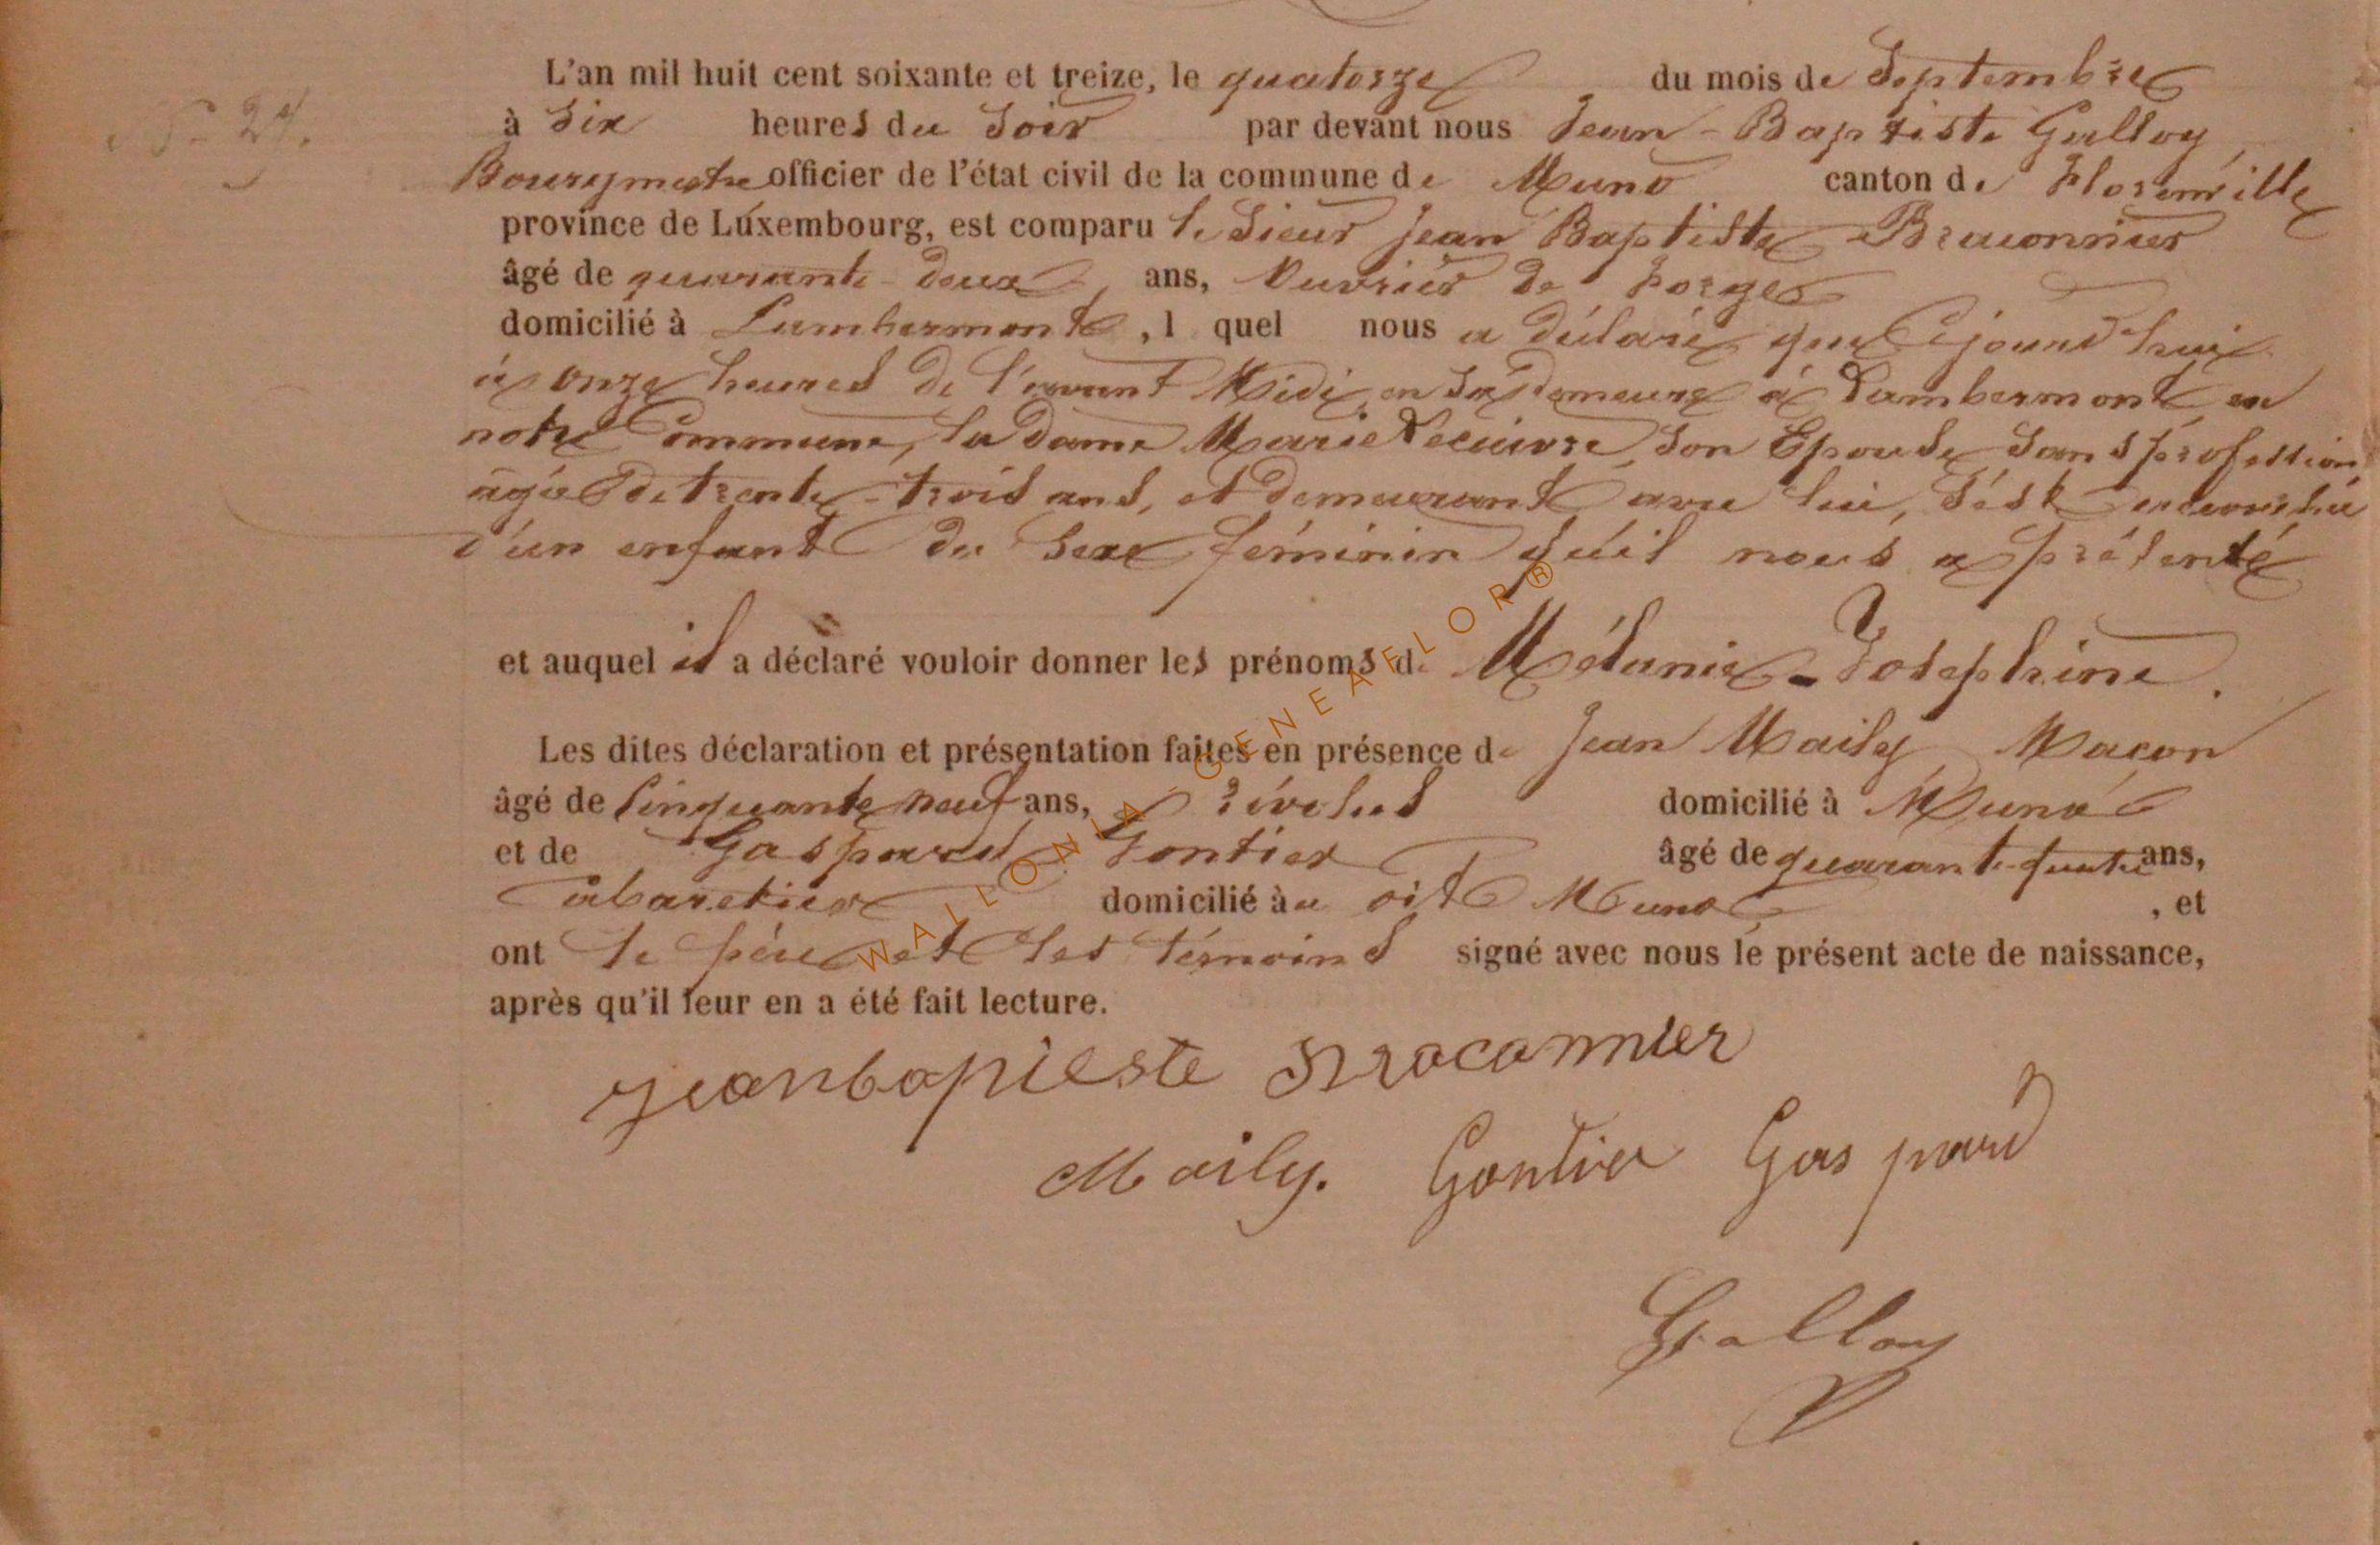 N° 24.
L'an mil huit cent soixante et treize, le quatorze du mois de Septembre
à Six heures du Soir par devant nous Jean-Baptiste Galloy
Bourgmestre officier de l'état civil de la commune de Muno canton de Florenville
province de Luxembourg, est comparu le Sieur Jean Baptiste Braconnier
âgé de quarante-deux ans, Ouvrier de Forges
domicilié à Lambermont, lequel nous a déclaré que Cejourd'hui
à onze heures de l'avant Midi, en sa demeure à Lambermont en
notre Commune, la dame Marie Lecuivre, Son Epouse Sans profession
agée de trente-trois ans, et demeurant avec lui, S'est accouchée
d'un enfant du Sexe féminin qu'il nous a présenté
et auquel il a déclaré vouloir donner les prénoms de Mélanie-Josephine.
Les dites déclaration et présentation faites en présence de Jean Maily Macon
âgé de Cinquante neuf ans, révolus domicilié à Muno
et de Gaspard Gontier âgé de quarante-quatre ans,
Cabaretier domicilié à au dit Muno, et
ont le père et les témoins signé avec nous le présent acte de naissance,
après qu'il leur en a été fait lecture.
jeanbapieste Bracannier
Maily. Gontier Gaspard
Galloy
WALLONIA - GENEAFLOR®